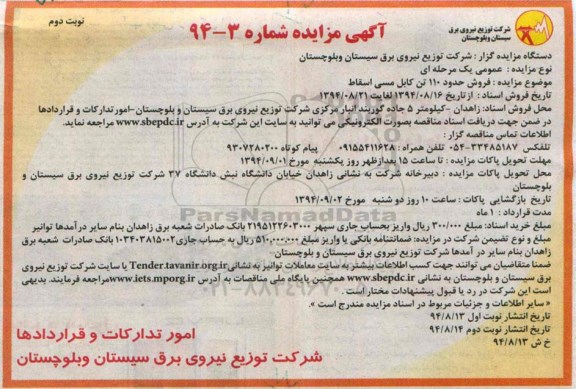 نوبت دوم
آگهی مزایده شماره ۳-۹۴
شرکت توزیع نیروی برق
سیستان وبلوچستان
دستگاه مزایده گزار : شرکت توزیع نیروی برق سیستان وبلوچستان
نوع مزایده : عمومی یک مرحله ای
موضوع مزایده : فروش حدود ۱۱۰ تن کابل مسی اسقاط
تاریخ فروش اسناد : ازتاریخ ۱۳۹۴/۰۸/۱۶ لغایت ۱۳۹۴/۰۸/۲۱
محل فروش اسناد: زاهدان -کیلومتر ۵ جاده گوربند انبار مرکزی شرکت توزیع نیروی برق سیستان و بلوچستان-امورتدارکات و قراردادها
در ضمن جهت دریافت اسناد مناقصه بصورت الکترونیکی می توانید به سایت این شرکت به آدرس www.sbepdc.ir مراجعه نماید.
اطلاعات تماس مناقصه گزار :
تلفکس ۳۳۴۸۵۱۸۷-۰۵۴ تلفن همراه : ۰۹۱۵۵۴۱۱۶۲۸ پیام کوتاه ۹۳۰۷۲۸۰۲۰۰
مهلت تحویل پاکات مزایده : تا ساعت ۱۵ بعدازظهر روز یکشنبه مورخ ۱۳۹۴/۰۹/۰۱
محل تحویل پاکات مزایده : دبیرخانه شرکت به نشانی زاهدان خیابان دانشگاه نبش دانشگاه ۳۷ شرکت توزیع نیروی برق سیستان و
بلوچستان
تاریخ بازگشایی پاکات : ساعت ۱۰ روز دو شنبه مورخ ۱۳۹۴/۰۹/۰۲
مدت قرارداد : ۱ ماه
مبلغ خرید اسناد: مبلغ ۳۰۰/۰۰۰ ریال واریز بحساب جاری سپهر ۲۱۹۵۱۲۲۶۰۳۰۰۰ بانک صادرات شعبه برق زاهدان بنام سایر در آمدها توانیر
مبلغ و نوع تضیمن شرکت در مزایده: ضمانتنامه بانکی یا واریز مبلغ ۵۱۰,۰۰۰,۰۰۰ ریال به حساب جاری ۱۰۳۴۰۳۸۱۵۰۰۲ بانک صادرات شعبه برق
زاهدان بنام سایر در آمدها شرکت توزیع نیروی برق سیستان و بلوچستان
ضمنا متقاضیان می توانند جهت کسب اطلاعات بیشتر به سایت معاملات توانیر به نشانی Tender.tavanir.org.ir یا سایت شرکت توزیع نیروی
برق سیستان و بلوچستان به نشانی www.sbepdc.ir همچنین پایگاه ملی مناقصات به آدرس www.iets.mporg.ir مراجعه فرمایند. بدیهی
است این شرکت در رد یا قبول پیشنهادات مختار است
« سایر اطلاعات و جزئیات مربوط در اسناد مزایده مندرج است »
تاریخ انتشار نوبت اول ۹۴/۸/۱۳
تاریخ انتشار نوبت دوم ۹۴/۸/۱۴
خ ش ۹۴/۸/۱۳
امور تدارکات و قراردادها
شرکت توزیع نیروی برق سیستان وبلوچستان
ParsNamadData